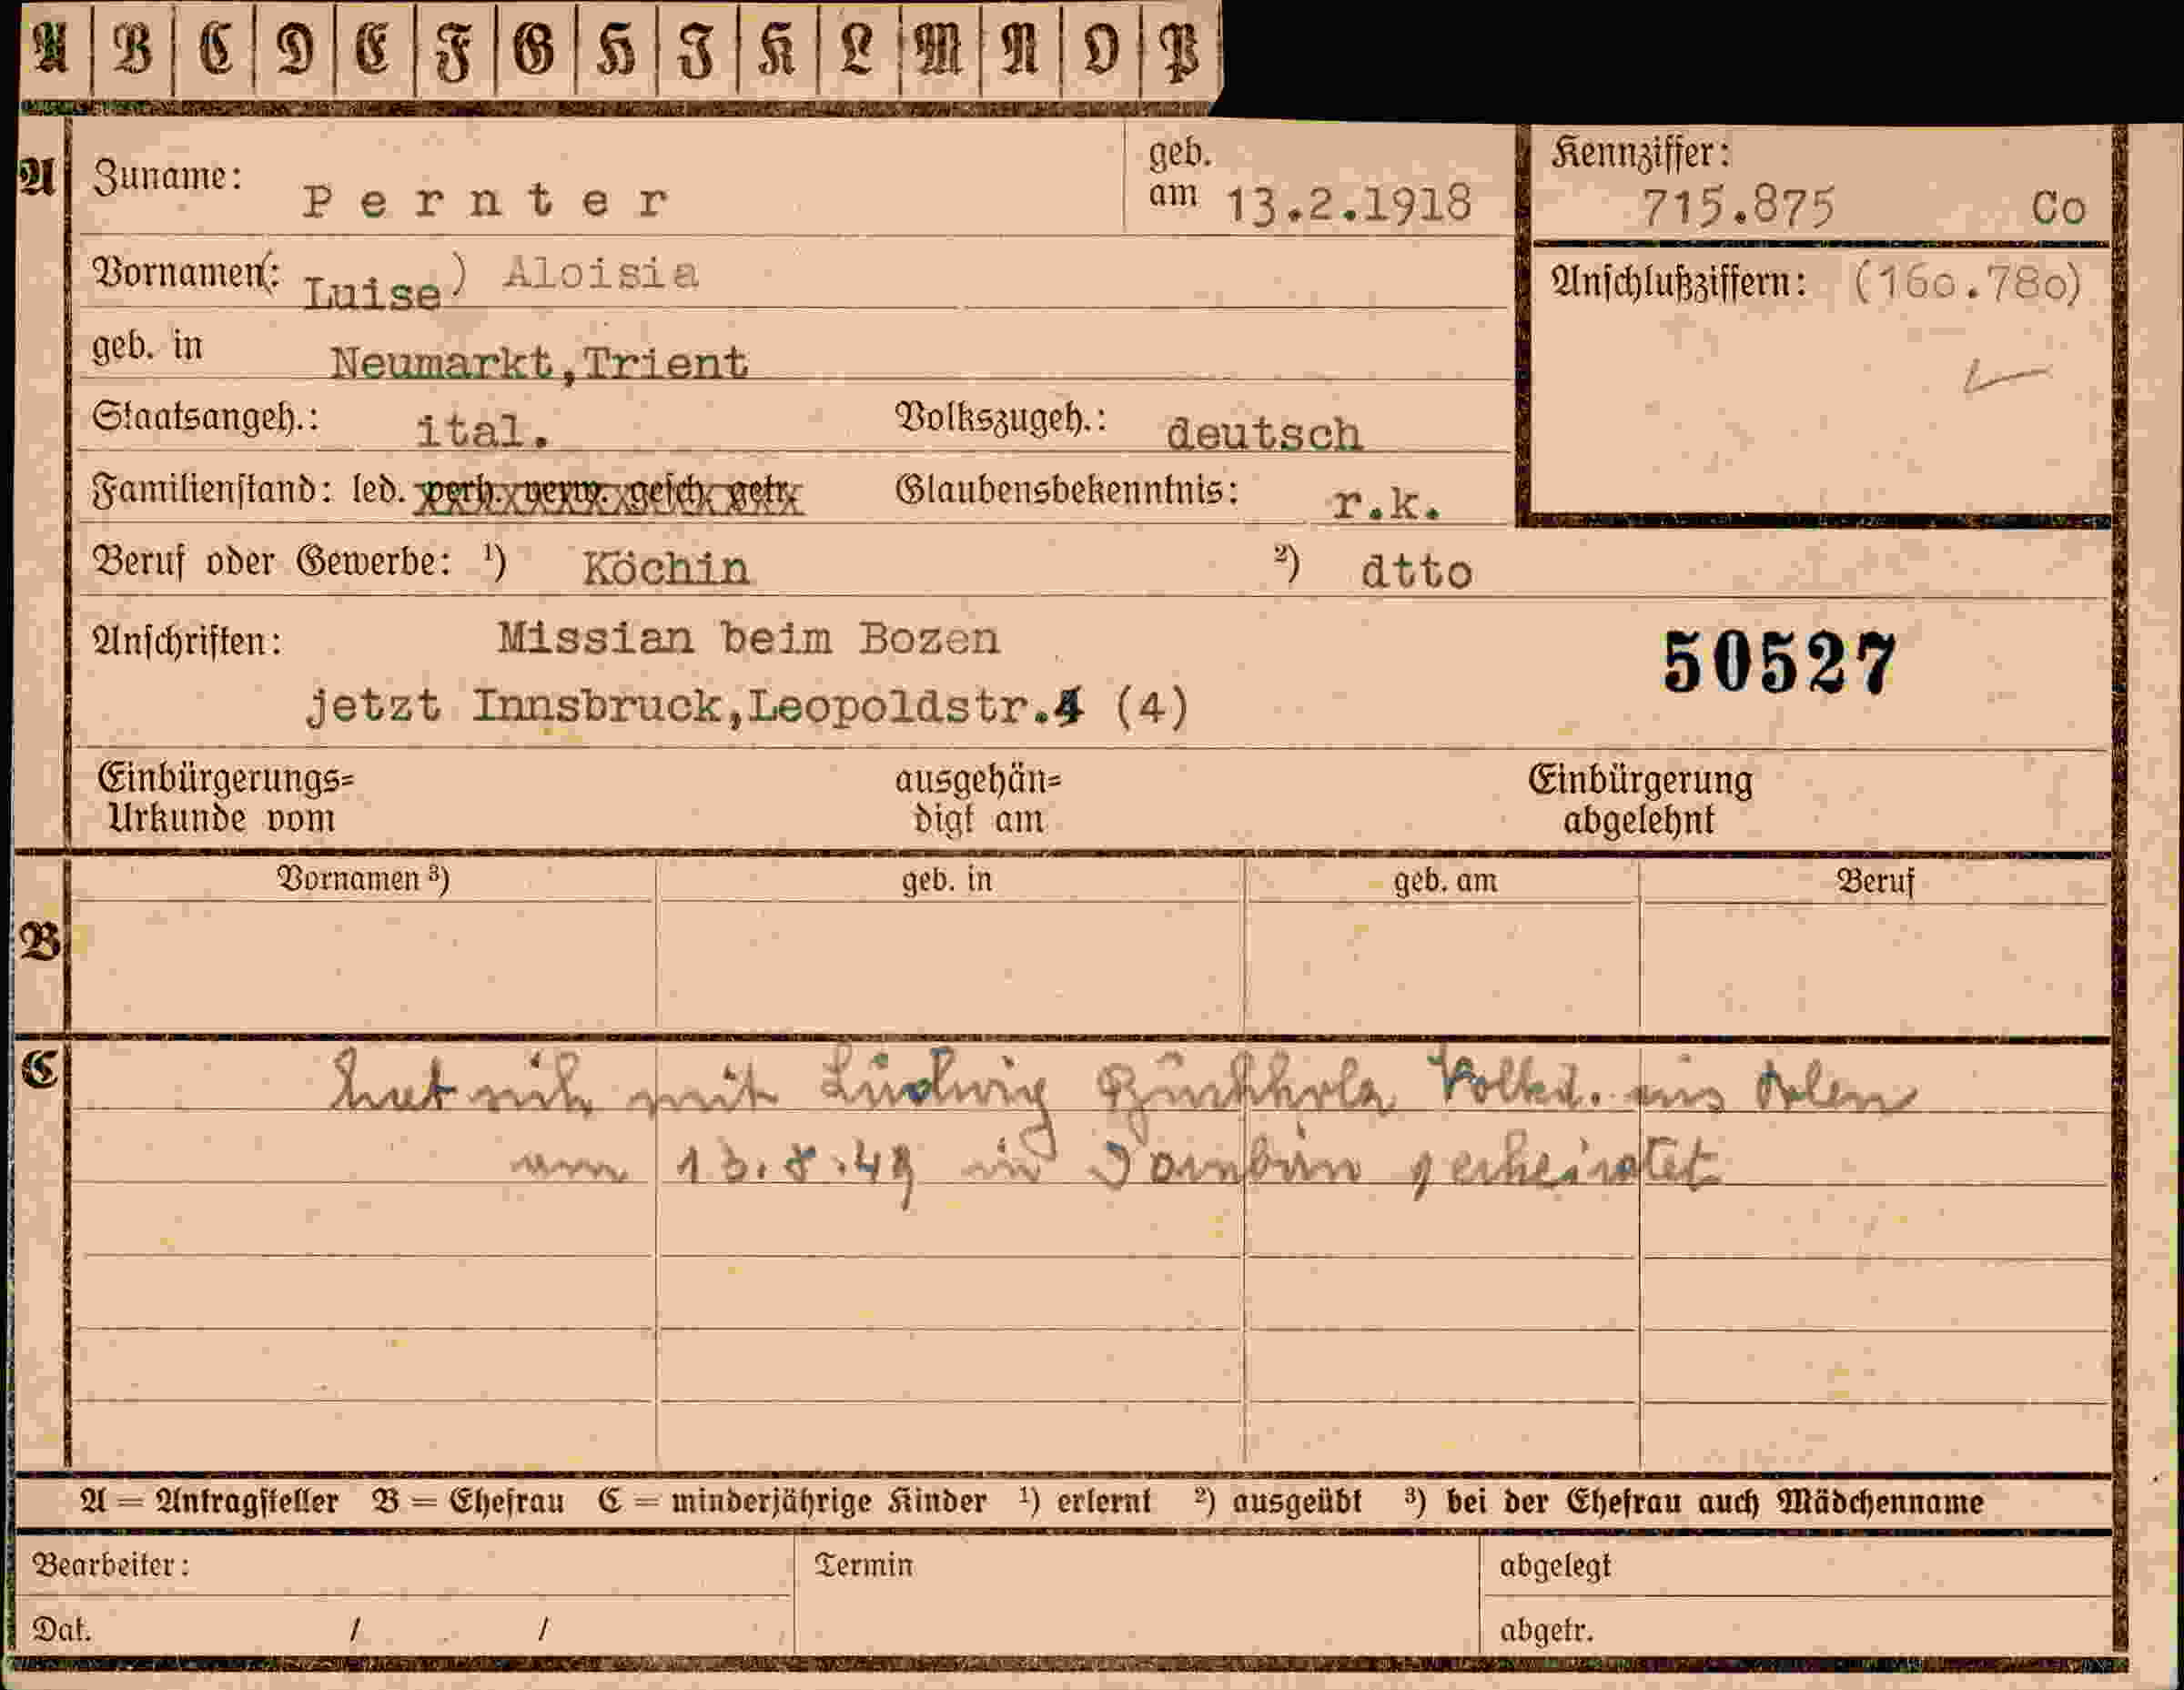 A B C D E F G H J K L M N O P
A Zuname: Pernter geb. am 13.2.1918 Kennziffer: 715.875 Co
Vornamen(: Luise) Aloisia Anschlußziffern: (160.780)
geb. in Neumarkt,Trient
Staatsangeh.: ital. Volkszugeh.: deutsch
Familienstand: led. verh. verw. gesch. getr. Glaubensbekenntnis: r.k.
Beruf oder Gewerbe: ¹) Köchin ²) dtto
Anschriften: Missian beim Bozen 50527
jetzt Innsbruck,Leopoldstr.4 (4)
Einbürgerungs= ausgehän= Einbürgerung
Urkunde vom digt am abgelehnt
Vornamen ³) geb. in geb. am Beruf
B
C hat sich mit Ludwig Volksd. aus Polen
am in Dornbirn verheiratet
A = Antragsteller B = Ehefrau C = minderjährige Kinder ¹) erlernt ²) ausgeübt ³) bei der Ehefrau auch Mädchenname
Bearbeiter: Termin abgelegt
Dat. / / abgetr.